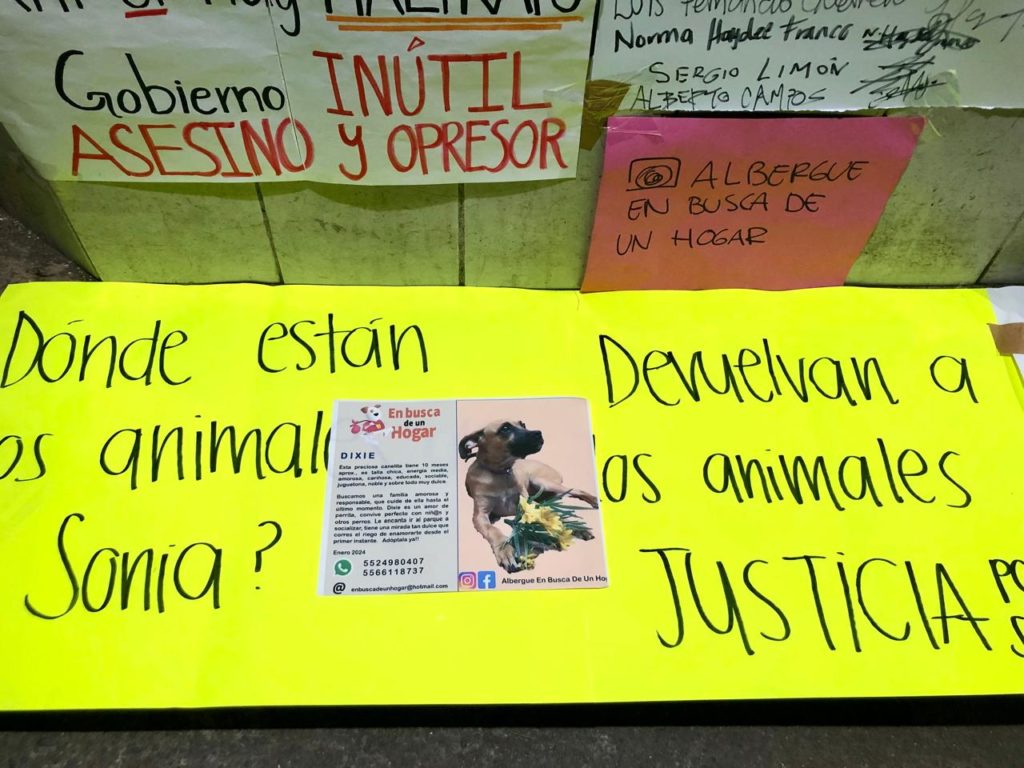 MALTRATO
Gobierno INÚTIL
ASESINO y OPRESOR
Luis Fernando
Norma Haydee Franco
SERGIO LIMÓN
ALBERTO CAMPOS
ALBERGUE
EN BUSCA DE
UN HOGAR
Dónde están
os animal
Sonia?
En busca
de un
Hogar
DIXIE
Esta preciosa canelita tiene 10 meses
aprox., es talla chica, energía media,
amorosa, cariñosa, educada, sociable,
juguetona, noble y sobre todo muy dulce.
Buscamos una familia amorosa y
responsable, que cuide de ella hasta el
último momento. Dixie es un amor de
perrita, convive perfecto con niñ@s y
otros perros. Le encanta ir al parque a
socializar, tiene una mirada tan dulce que
corres el riego de enamorarte desde el
primer instante. Adóptala ya!!
Enero 2024
5524980407
5566118737
@ enbuscadeunhogar@hotmail.com
Albergue En Busca De Un Ho
Devuelvan a
os animales
JUSTICIA